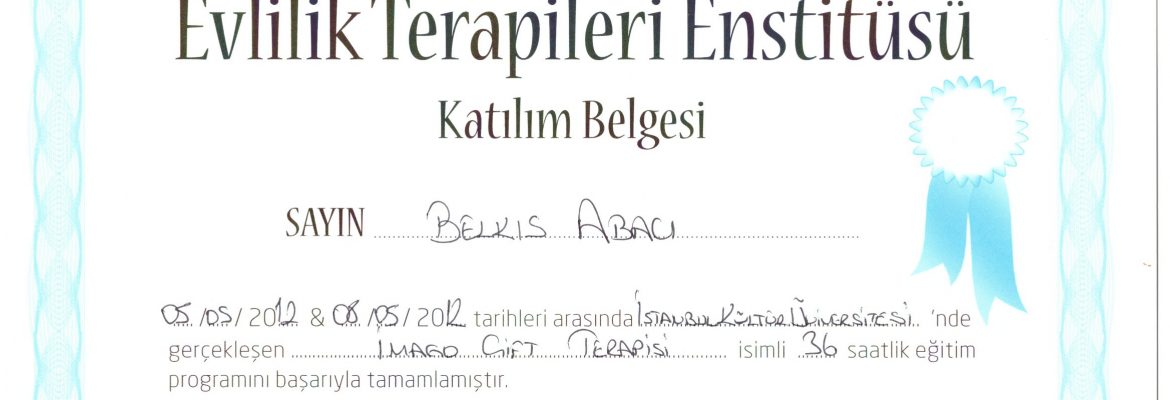 Evlilik Terapileri Enstitüsü
Katılım Belgesi
SAYIN BELKIS ABACI
05/05/2012 & 08/05/2012 tarihleri arasında İSTANBUL KÜLTÜR ÜNİVERSİTESİ 'nde
gerçekleşen IMAGO ÇİFT TERAPİSİ isimli 36 saatlik eğitim
programını başarıyla tamamlamıştır.